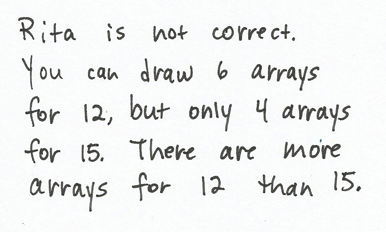 Rita is not correct.
You can draw 6 arrays
for 12, but only 4 arrays
for 15. There are more
arrays for 12 than 15.